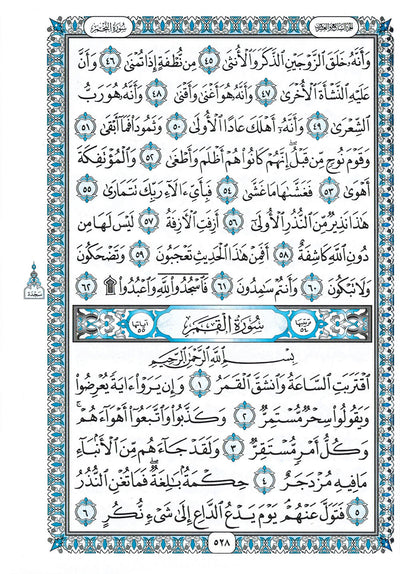 سُورَةُ النَّجْمِ الجُزْءُ السَّابِعُ وَالعِشْرُونَ
وَأَنَّهُۥ خَلَقَ ٱلزَّوْجَيْنِ ٱلذَّكَرَ وَٱلْأُنثَىٰ ٤٥ مِن نُّطْفَةٍ إِذَا تُمْنَىٰ ٤٦ وَأَنَّ
عَلَيْهِ ٱلنَّشْأَةَ ٱلْأُخْرَىٰ ٤٧ وَأَنَّهُۥ هُوَ أَغْنَىٰ وَأَقْنَىٰ ٤٨ وَأَنَّهُۥ هُوَ رَبُّ
ٱلشِّعْرَىٰ ٤٩ وَأَنَّهُۥٓ أَهْلَكَ عَادًا ٱلْأُولَىٰ ٥٠ وَثَمُودَا۟ فَمَآ أَبْقَىٰ ٥١
وَقَوْمَ نُوحٍ مِّن قَبْلُ إِنَّهُمْ كَانُوا۟ هُمْ أَظْلَمَ وَأَطْغَىٰ ٥٢ وَٱلْمُؤْتَفِكَةَ
أَهْوَىٰ ٥٣ فَغَشَّىٰهَا مَا غَشَّىٰ ٥٤ فَبِأَىِّ ءَالَآءِ رَبِّكَ تَتَمَارَىٰ ٥٥
هَٰذَا نَذِيرٌ مِّنَ ٱلنُّذُرِ ٱلْأُولَىٰٓ ٥٦ أَزِفَتِ ٱلْءَازِفَةُ ٥٧ لَيْسَ لَهَا مِن
دُونِ ٱللَّهِ كَاشِفَةٌ ٥٨ أَفَمِنْ هَٰذَا ٱلْحَدِيثِ تَعْجَبُونَ ٥٩ وَتَضْحَكُونَ
وَلَا تَبْكُونَ ٦٠ وَأَنتُمْ سَٰمِدُونَ ٦١ فَٱسْجُدُوا۟ لِلَّهِ وَٱعْبُدُوا۟ ۩ ٦٢
سجدة
ترتيبها ٥٤ سُورَةُ القَمَرِ آياتها ٥٥
بِسْمِ ٱللَّهِ ٱلرَّحْمَٰنِ ٱلرَّحِيمِ
ٱقْتَرَبَتِ ٱلسَّاعَةُ وَٱنشَقَّ ٱلْقَمَرُ ١ وَإِن يَرَوْا۟ ءَايَةً يُعْرِضُوا۟
وَيَقُولُوا۟ سِحْرٌ مُّسْتَمِرٌّ ٢ وَكَذَّبُوا۟ وَٱتَّبَعُوٓا۟ أَهْوَآءَهُمْ ۚ
وَكُلُّ أَمْرٍ مُّسْتَقِرٌّ ٣ وَلَقَدْ جَآءَهُم مِّنَ ٱلْأَنۢبَآءِ
مَا فِيهِ مُزْدَجَرٌ ٤ حِكْمَةٌۢ بَٰلِغَةٌ ۖ فَمَا تُغْنِ ٱلنُّذُرُ
٥ فَتَوَلَّ عَنْهُمْ ۘ يَوْمَ يَدْعُ ٱلدَّاعِ إِلَىٰ شَىْءٍ نُّكُرٍ ٦
٥٢٨